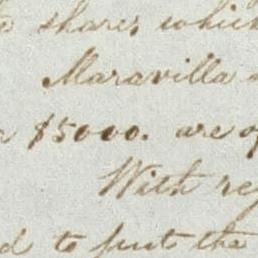 shares which
Maravilla
$5000. are of
With reg
d to put the